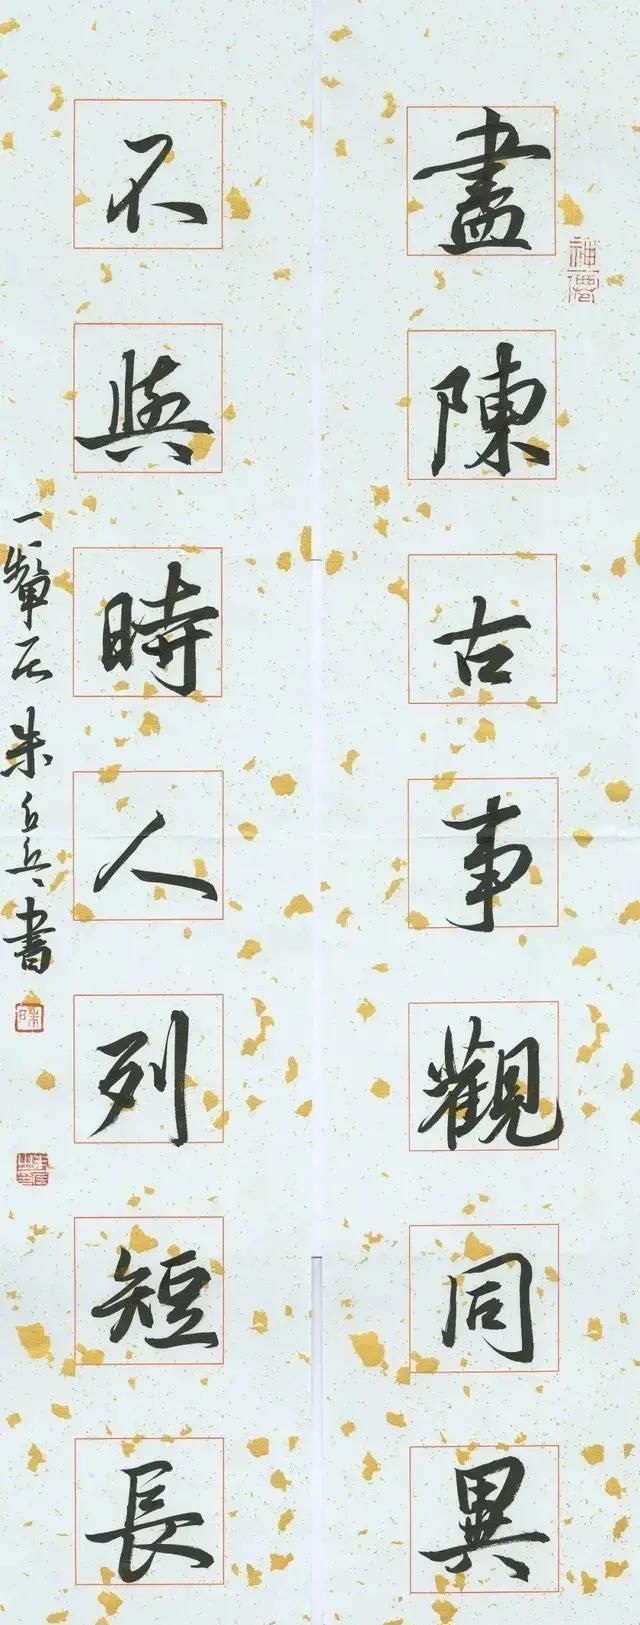 盡陳古事觀同異
不與時人列短長
朱丘兵書